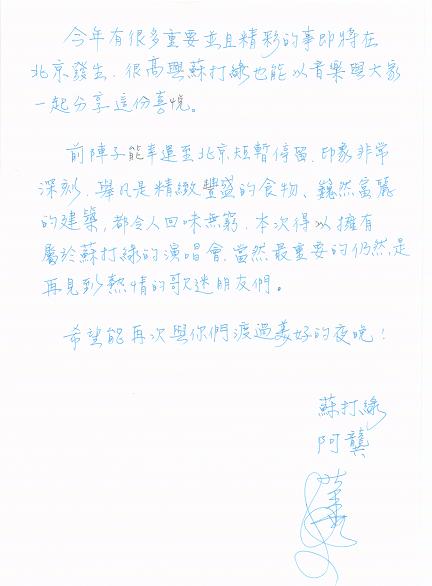 今年有很多重要並且精彩的事即將在
北京發生，很高興蘇打綠也能以音樂與大家
一起分享這份喜悅。
前陣子能幸運至北京短暫停留，印象非常
深刻，舉凡是精緻豐盛的食物、巍然富麗
的建築，都令人回味無窮，本次得以擁有
屬於蘇打綠的演唱會，當然最重要的仍然是
再見到熱情的歌迷朋友們。
希望能再次與你們渡過美好的夜晚！
蘇打綠
阿龔